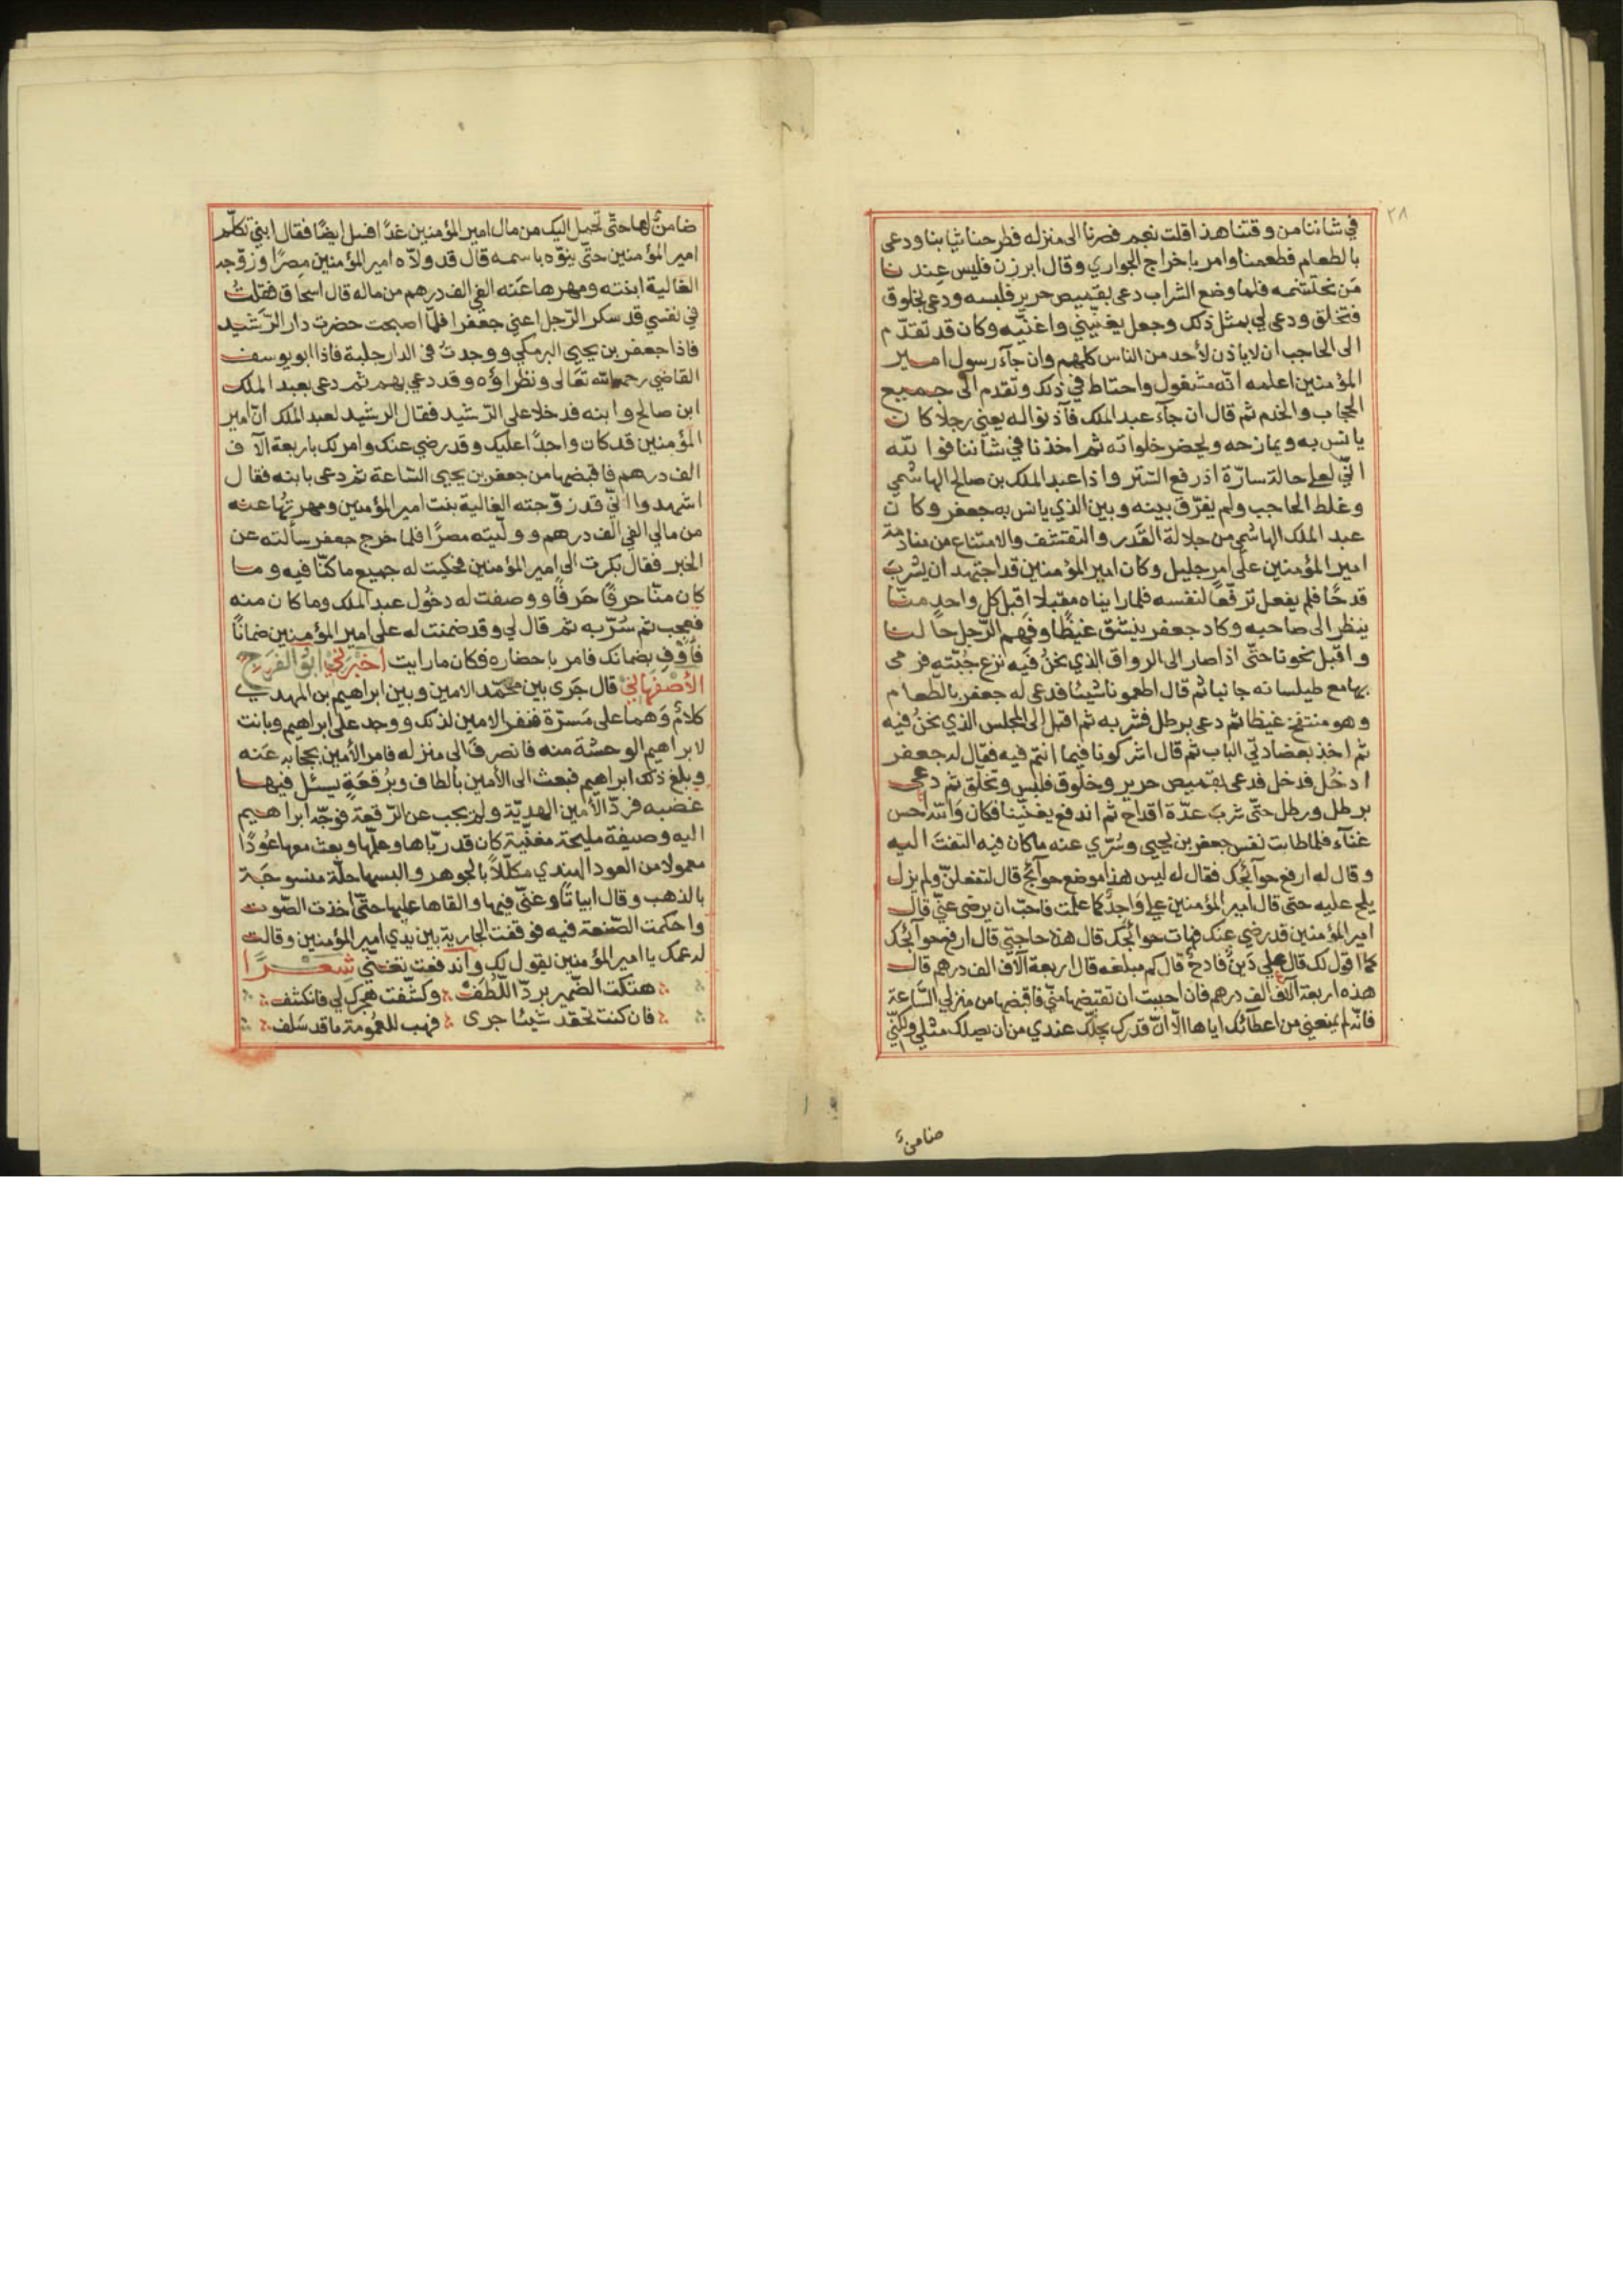 ٢٨
في شاننا من وقتنا هذا قلت نعم فصرنا الى منزله فطرحنا ثيابنا ودعى
بالطعام فطعمنا وامر باخراج الجواري وقال ابرزن فليس عندنا
من نحتشمه فلما وضع الشراب دعى بقميص حرير فلبسه ودعى بخلوق
فتخلق ودعى لي بمثل ذلك وجعل يغنيني واغنّيه وكان قد تقدّم
الى الحاجب ان لا ياذن لأحد من الناس كلهم وان جآء رسول امير
المؤمنين اعلمه انّه مشغول واحتاط في ذلك وتقدم الى جميع
الحجاب والخدم ثم قال ان جآء عبد الملك فآذنوا له يعني رجلا كان
يانس به ويمازحه ويحضر خلواته ثم اخذنا في شاننا فوالله
انّي لعلى حالة سارّة اذ رفع الستر واذا عبد الملك بن صالح الهاشمي
وغلط الحاجب ولم يفرّق بينه وبين الذي يانس به جعفر وكان
عبد الملك الهاشمي من جلالة القدر والتقشف والامتناع من منادمة
امير المؤمنين على امر جليل وكان امير المؤمنين قد اجتهد ان يشرب
قدحًا فلم يفعل ترفّعًا لنفسه فلما رايناه مقبلا اقبل كل واحد منّا
ينظر الى صاحبه وكاد جعفر ينشق غيظًا وفهم الرّجل حالنا
واقبل نحونا حتّى اذا صار الى الرواق الذي نحنُ فيه نزع جُبّته فرمى
بها مع طيلسانه جانبا ثم قال اطعمونا شيئا فدعى له جعفر بالطّعام
وهو منتفخ غيظا ثم دعى برطل فشربه ثم اقبل الى المجلس الذي نحنُ فيه
ثم اخذ بعضادتي الباب ثم قال اشركونا فيما انتم فيه فقال له جعفر
ادخُل فدخل فدعى بقميص حرير وخلوق فلبس وتخلّق ثم دعى
برطل ورطل حتّى شرب عدّة اقداح ثم اندفع يغنّينا فكان والله احسن
غنآء فلما طابت نفس جعفر بن يحيى وسُرّي عنه ما كان فيه التفت اليه
وقال له ارفع حوآئجك فقال له ليس هذا موضع حوآئج قال لتفعلنّ ولم يزل
يلح عليه حتى قال امير المؤمنين علي واجدٌ كما علمت فاحبّ ان يرضى عنّي قال
امير المؤمنين قد رضي عنك فهات حوائجك قال هذه حاجتي قال ارفع حوآئجك
كما اقول لك قال علي دَينٌ فادحٌ قال كم مبلغه قال اربعة آلاف الف درهم قال
هذه اربعة آلاف الف درهم فان احببت ان تقبضها منّي فاقبضها من منزلي السّاعة
فانّه لم يمنعني من اعطآئك اياها الا انّ قدرك يجلّ عندي من ان يصلك مثلي ولكنّي
ضامنٌ
ضامنٌ لها حتّى تحمل اليك من مال امير المؤمنين غدًا فسل ايضًا فقال ابني تكلّم
امير المؤمنين حتّى ينوّه باسمه قال قد ولاّه امير المؤمنين مصرًا وزوّجه
الغالية ابنته ومهرها عنه الفي الف درهم من ماله قال اسحاق فقلتُ
في نفسي قد سكر الرّجل اعني جعفرا فلمّا اصبحت حضرت دار الرّشيد
فاذا جعفر بن يحيى البرمكي ووجدتُ في الدار جلبة فاذا ابو يوسف
القاضي رحمه الله تعالى ونظراؤه وقد دعي بهم ثم دعى بعبد الملك
ابن صالح وابنه فدخلا على الرّشيد فقال الرشيد لعبد الملك انّ امير
المؤمنين قد كان واجدًا عليك وقد رضي عنك وامر لك باربعة آلاف
الف درهم فاقبضها من جعفر بن يحيى السّاعة ثم دعى بابنه فقال
اشهدوا انّي قد زوّجته الغالية بنت امير المؤمنين ومهرتها عنه
من مالي الفي الف درهم وولّيته مصرًا فلما خرج جعفر سألته عن
الخبر فقال بكرت الى امير المؤمنين فحكيت له جميع ما كنّا فيه وما
كان منّا حرفًا حَرفًا ووصفت له دخُول عبد الملك وما كان منه
فعجب ثم سُرّ به ثم قال لي وقد ضمنت له على امير المؤمنين ضمانًا
فأوفِ بضمانك فامر باحضاره فكان ما رايت اخبرني ابو الفرج
الأصفهاني قال جَرى بين محمّد الامين وبين ابراهيم بن المهدي
كلامٌ وهما على مسرّة فنفر الامين لذلك ووجد على ابراهيم وبانت
لابراهيم الوحشة منه فانصرف الى منزله فامر الأمين بحجابه عنه
وبلغ ذلك ابراهيم فبعث الى الأمين بألطاف وبرُقعةٍ يسئل فيها
غضبه فردّ الأمين الهديّة ولم يجب عن الرّقعة فوجّه ابراهيم
اليه وصيفة مليحة مغنّية كان قد ربّاها وعلّمها وبعث معها عُودًا
معمولا من العود الهندي مكلّلاً بالجوهر والبسها حلّة منسوجة
بالذهب وقال ابياتًا وغنّى فيها والقاها عليها حتّى اخذت الصّوت
واحكمت الصّنعة فيه فوقفت الجارية بين يدي امير المؤمنين وقالت
له عمك يا امير المؤمنين يقول لك واندفعت تغنّي شعرًا
هتكت الضّمير بردّ اللّطف وكشّفت هجرك لي فانكشف
فان كنت تحقد شيئا جرى فهب للعمُومة ما قد سَلف